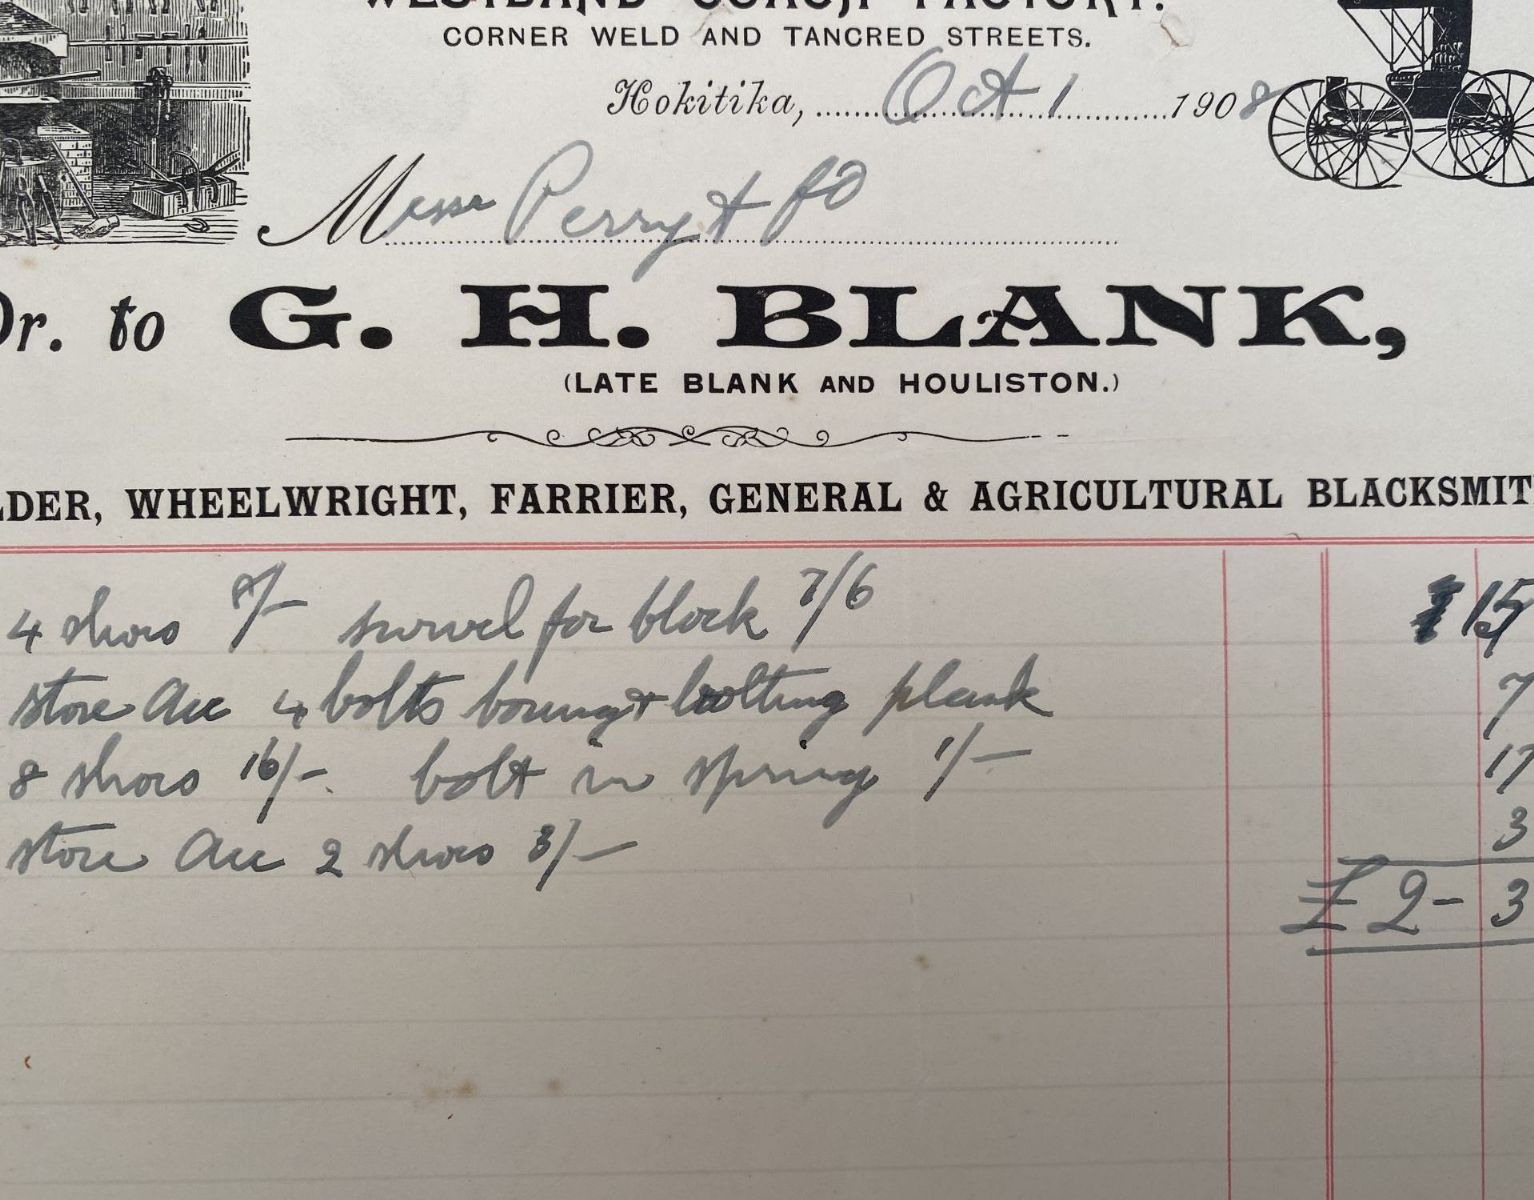 WESTLAND COACH FACTORY.
CORNER WELD AND TANCRED STREETS.
Hokitika, Oct 1 1908
Messrs Perry & Co
Dr. to G. H. BLANK,
(LATE BLANK AND HOULISTON.)
LDER, WHEELWRIGHT, FARRIER, GENERAL & AGRICULTURAL BLACKSMIT
4 shoes 8/- swivel for block 7/6 15
store Acc 4 bolts boring & bolting plank 7
8 shoes 16/-. bolt in spring 1/- 17
store Acc 2 shoes 3/- 3
£ 2 - 3